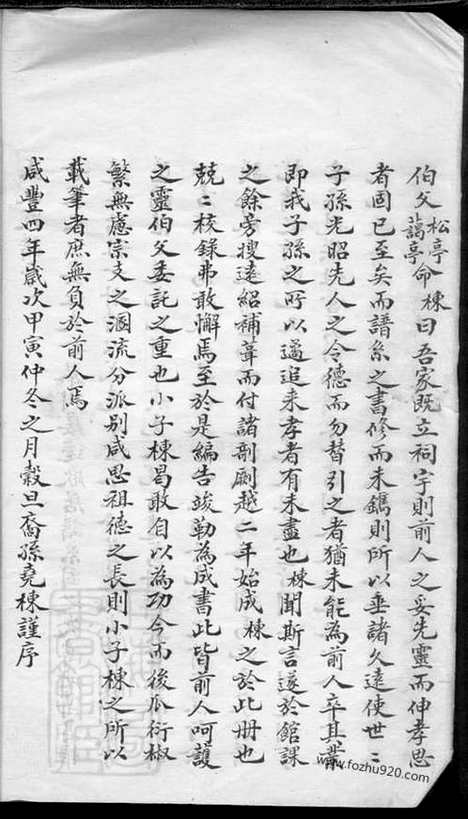 伯父松亭藹亭命棟曰吾家既立祠宇則前人之妥先靈而伸孝思
者固已至矣而譜系之書修而未鐫則所以垂諸久遠使世〻
子孫光昭先人之令德而勿替引之者猶未能為前人卒其業
即我子孫之所以遹追來孝者有未盡也棟聞斯言遂於館課
之餘旁搜遠紹補葺而付諸剞劂越二年始成棟之於此冊也
兢〻核錄弗敢懈焉至於是編告竣勒為成書此皆前人呵護
之靈伯父委託之重也小子棟曷敢自以為功今而後瓜衍椒
繁無慮宗支之溷流分派別咸思祖德之長則小子棟之所以
載筆者庶無負於前人焉
咸豐四年歲次甲寅仲冬之月穀旦裔孫堯棟謹序
www.fozhu920.com